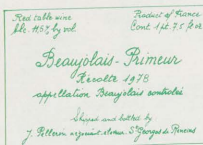 Red table wine
Product of France
Alc. 11.5% by vol
Cont. 1 pt. 7.5 fl oz
Beaujolais-Primeur
Récolte 1978
appellation Beaujolais contrôlée
Shipped and bottled by
J. Pelleron négociant éleveur St Georges de Reneins